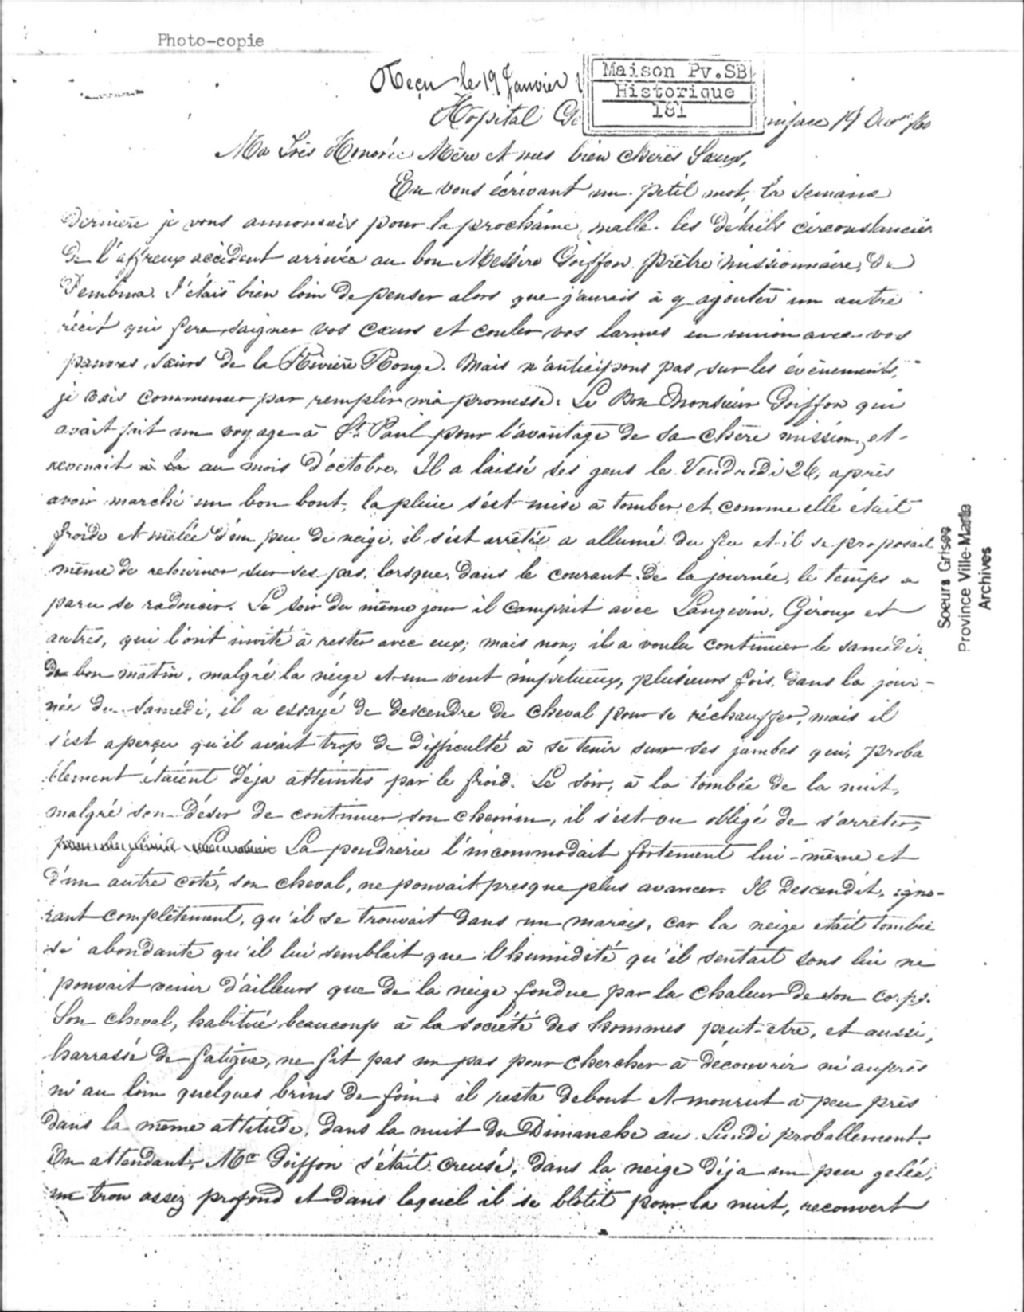 Photo-copie
Reçu le 19 Janvier
Maison Pv.SB
Historique
181
Hôpital niface 19
Ma très Honorée Mère et mes bien chères Sœurs,
En vous écrivant un petit mot, la semaine
dernière je vous annonçais pour la prochaine malle les détails circonstanciés
de l'affreux accident arrivée au bon Messire Goiffon, prêtre missionnaire, de
Pembina. J'étais bien loin de penser alors que j'aurais à y ajouter un autre
récit qui fera saigner vos cœurs et couler vos larmes en union avec vos
pauvres sœurs de la Rivière Rouge. Mais n'anticipons pas sur les événements,
je vais commencer par remplir ma promesse. Le Bon Monsieur Goiffon qui
avait fait un voyage à St Paul pour l'avantage de sa chère mission, et
revenait au mois d'octobre. Il a laissé ses gens le Vendredi 26, après
avoir marché un bon bout, la pluie s'est mise à tomber et comme elle était
froide et mêlée d'un peu de neige, il s'est arrêtté a allumé du feu et il se proposait
même de retourner sur ses pas, lorsque, dans le courant de la journée, le temps a
paru se radoucir. Le soir du même jour il campait avec Langevin, Giroux et
autres, qui l'ont invité à rester avec eux; mais non, il a voulu continuer le samedi
de bon matin, malgré la neige et un vent impétueux, plusieurs fois, dans la jour-
née du Samedi, il a essayé de descendre de cheval pour se réchauffer, mais il
s'est aperçu qu'il avait trop de difficulté à se tenir sur ses jambes qui, proba
blement étaient déja atteintes par le froid. Le soir, à la tombée de la nuit,
malgré son désir de continuer son chemin, il s'est vu obligé de s'arrêter,
La poudrerie l'incommodait fortement lui-même et
d'un autre coté, son cheval, ne pouvait presque plus avancer. Il descendit, igno-
rant complètement, qu'il se trouvait dans un marais, car la neige était tombée
si abondante qu'il lui semblait que l'humidité qu'il sentait sous lui ne
pouvait venir d'ailleurs que de la neige fondue par la chaleur de son corps.
Son cheval, habitué beaucoup à la société des hommes peut-être, et aussi,
harrassé de fatigue, ne fit pas un pas pour chercher à découvrir ni auprès
ni au loin quelques brins de foin, il resta debout et mourut à peu près
dans la même attitude, dans la nuit du Dimanche au Lundi probablement.
En attendant, Mr Goiffon s'était creusé, dans la neige déja un peu gelée,
un trou assez profond et dans lequel il se blotit pour la nuit, recouvert
Soeurs Grises
Province Ville-Marie
Archives